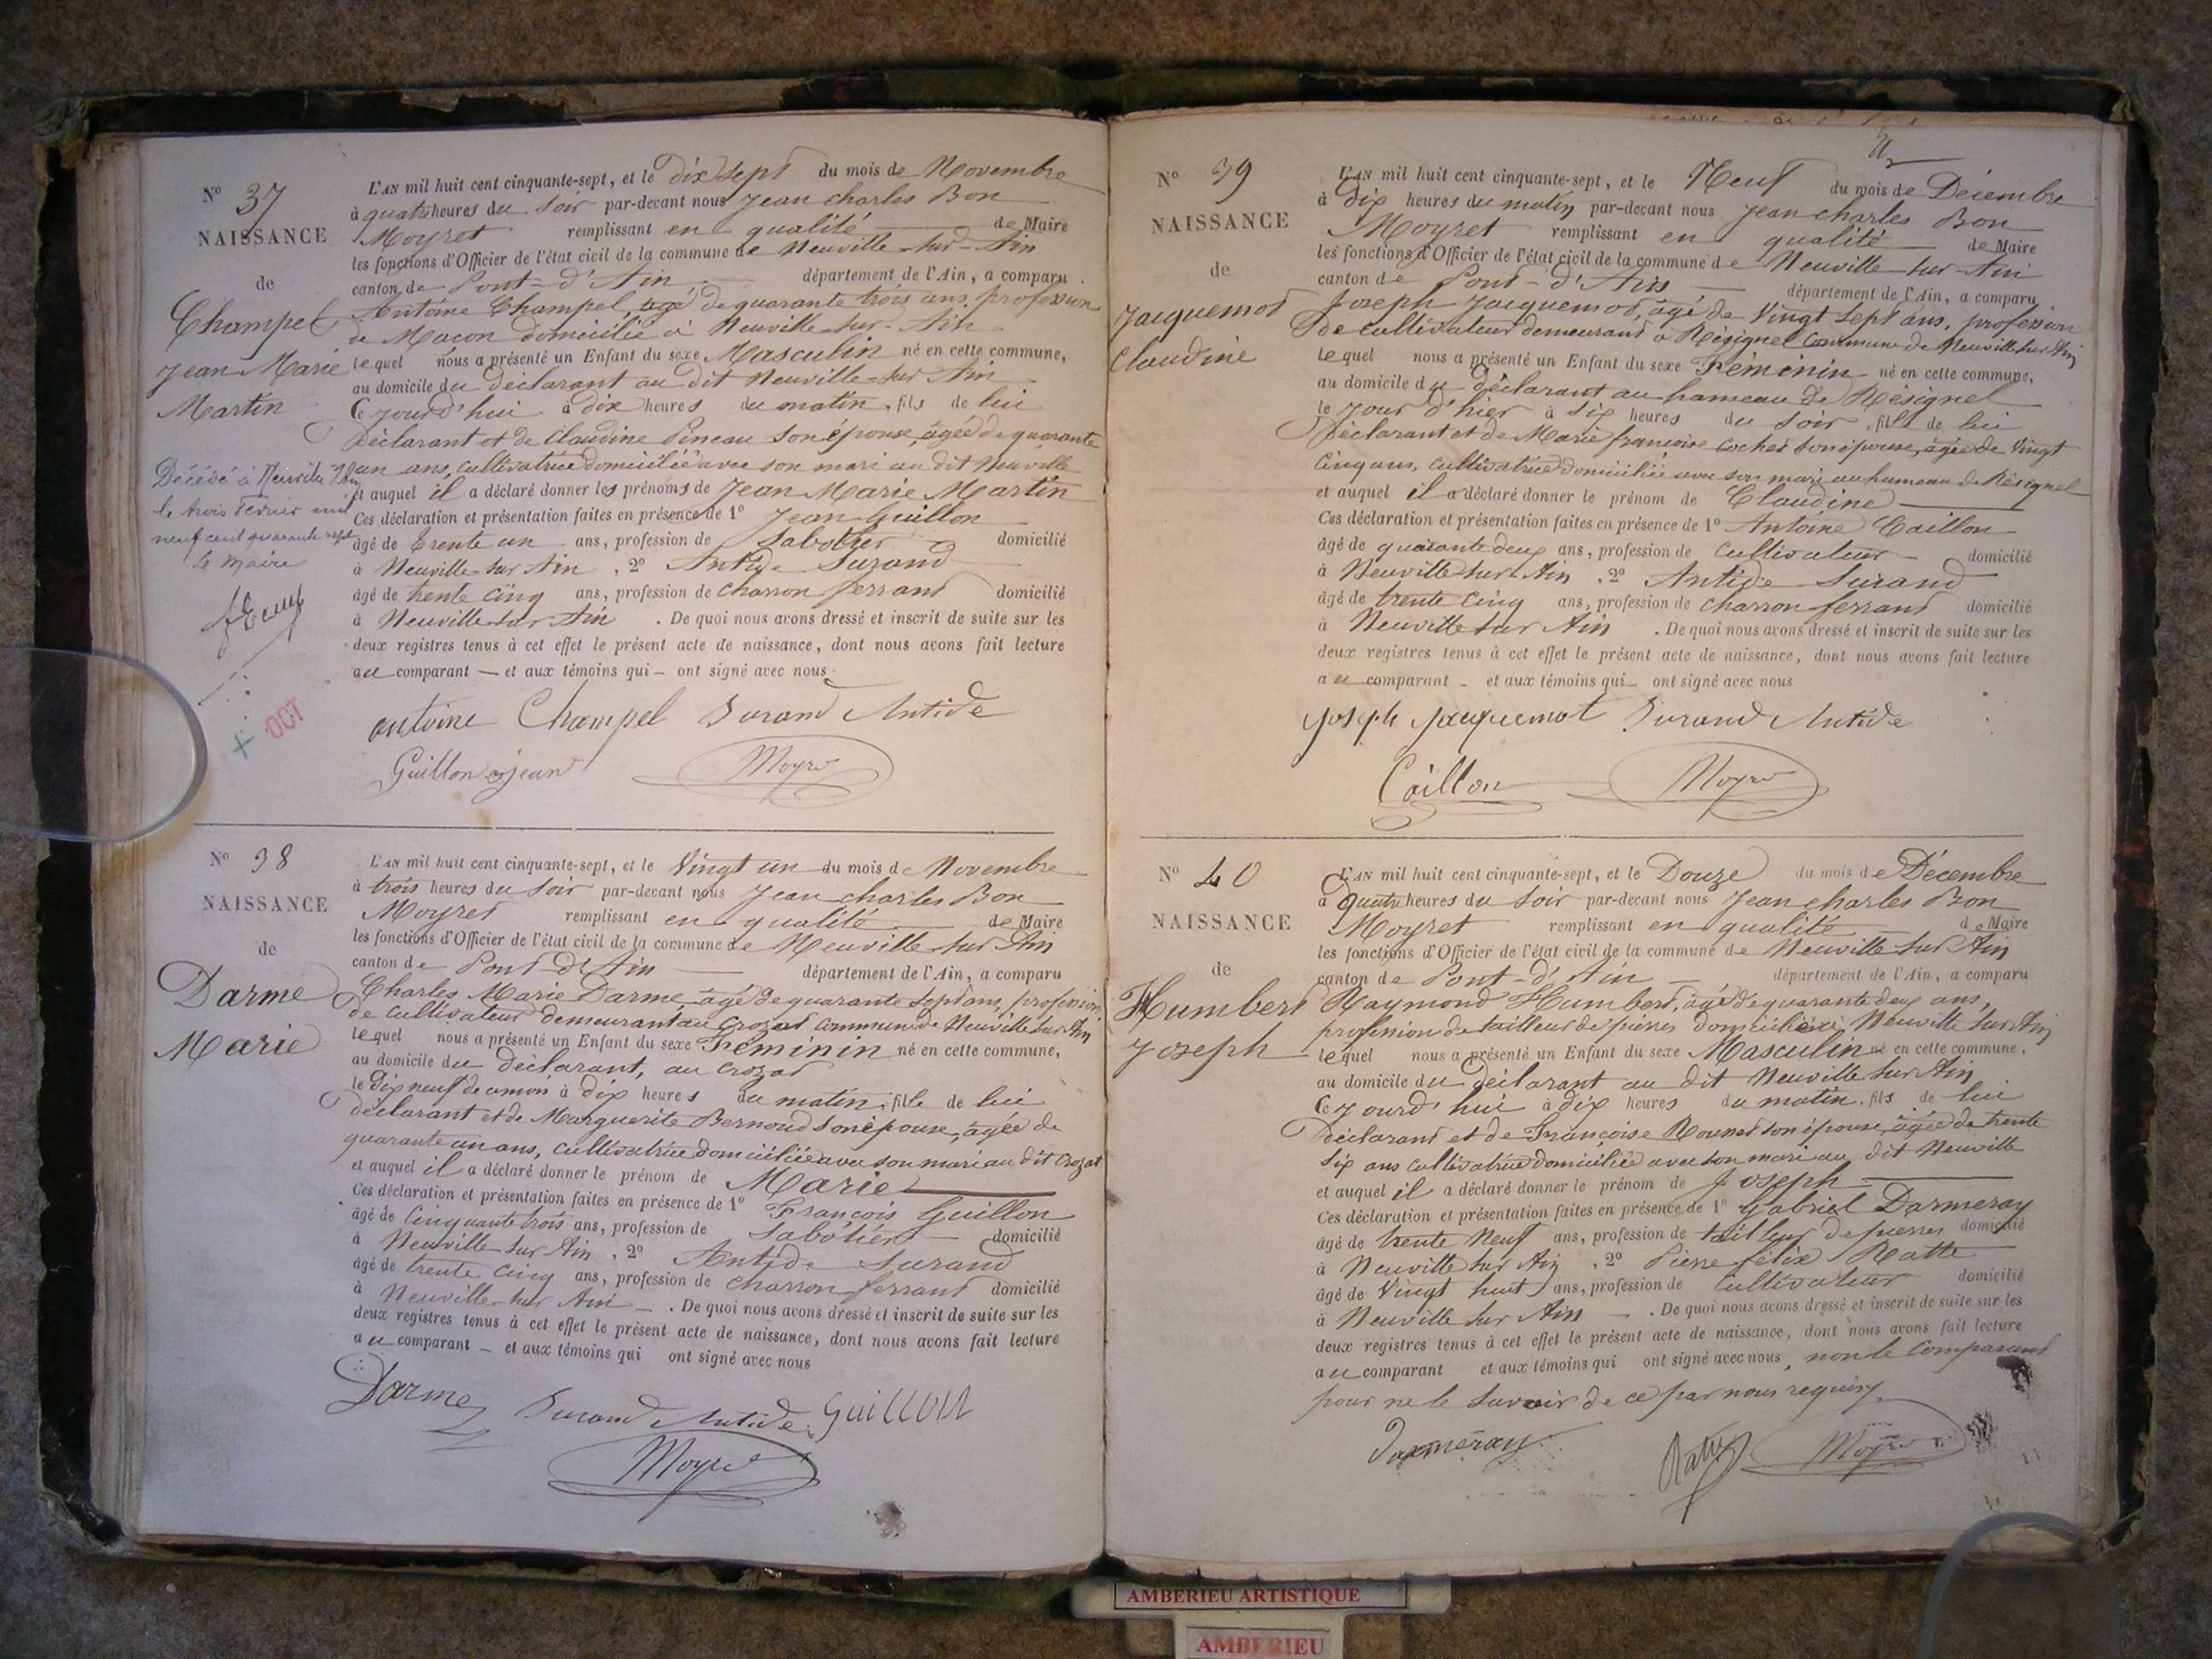 N° 37
NAISSANCE
de
Champel
Jean Marie
Martin
Décédé à Neuville s/ Ain
le trois Février mil
neuf cent quarante sept
Le Maire
+ OCT
L'AN mil huit cent cinquante-sept, et le dix sept du mois de Novembre
à quatre heures du soir par-devant nous Jean charles Bon
Moyret remplissant en qualité de Maire
les fonctions d'Officier de l'état civil de la commune de Neuville-sur-Ain
canton de Pont-d'Ain département de l'Ain, a comparu
Antoine Champel, agé de quarante trois ans, profession
de Maçon domicilié à Neuville-sur-Ain
lequel nous a présenté un Enfant du sexe Masculin né en cette commune,
au domicile du déclarant au dit Neuville-sur Ain
Ce jourd'hui à dix heures du matin, fils de lui
déclarant et de Claudine Pineau son épouse, agée de quarante
un ans, cultivatrice domiciliée avec son mari au dit Neuville
et auquel il a déclaré donner les prénoms de Jean Marie Martin
Ces déclaration et présentation faites en présence de 1° Jean Guillon
âgé de trente un ans, profession de Sabotier domicilié
à Neuville sur Ain, 2° Antide Durand
âgé de trente cinq ans, profession de charron ferrant domicilié
à Neuville sur Ain. De quoi nous avons dressé et inscrit de suite sur les
deux registres tenus à cet effet le présent acte de naissance, dont nous avons fait lecture
au comparant — et aux témoins qui — ont signé avec nous
antoine Champel Durand Antide
Guillon jean Moyret
N° 38
NAISSANCE
de
Darme
Marie
L'AN mil huit cent cinquante-sept, et le Vingt un du mois de Novembre
à trois heures du soir par-devant nous Jean charles Bon
Moyret remplissant en qualité de Maire
les fonctions d'Officier de l'état civil de la commune de Neuville sur Ain
canton de Pont-d'Ain département de l'Ain, a comparu
Charles Marie Darme agé de quarante sept ans, profession
de cultivateur demeurant au Crozat commune de Neuville sur Ain
lequel nous a présenté un Enfant du sexe Féminin né en cette commune,
au domicile du déclarant, au Crozat
le dix neuf de ce mois à dix heures du matin, fille de lui
déclarant et de Marguerite Bernoud son épouse, agée de
quarante un ans, cultivatrice domiciliée avec son mari au dit Crozat
et auquel il a déclaré donner le prénom de Marie
Ces déclaration et présentation faites en présence de 1° François Guillon
âgé de Cinquante trois ans, profession de Sabotier domicilié
à Neuville sur Ain, 2° Antide Durand
âgé de trente cinq ans, profession de charron ferrant domicilié
à Neuville sur Ain. De quoi nous avons dressé et inscrit de suite sur les
deux registres tenus à cet effet le présent acte de naissance, dont nous avons fait lecture
au comparant — et aux témoins qui ont signé avec nous
Darme Durand Antide Guillon
Moyret
N° 39
NAISSANCE
de
Jacquemot
Claudine
L'AN mil huit cent cinquante-sept, et le Neuf du mois de Décembre
à Dix heures du matin par-devant nous Jean charles Bon
Moyret remplissant en qualité de Maire
les fonctions d'Officier de l'état civil de la commune de Neuville-sur-Ain
canton de Pont-d'Ain département de l'Ain, a comparu
Joseph Jacquemot, agé de Vingt sept ans, profession
de cultivateur demeurant à Résignel Commune de Neuville sur Ain
lequel nous a présenté un Enfant du sexe Féminin né en cette commune,
au domicile du déclarant au hameau de Résignel
le jour d'hier à six heures du soir, fille de lui
déclarant et de Marie françoise Cochet son épouse, agée de Vingt
Cinq ans, cultivatrice domiciliée avec son mari au hameau de Résignel
et auquel il a déclaré donner le prénom de Claudine
Ces déclaration et présentation faites en présence de 1° Antoine Caillon
âgé de quarante deux ans, profession de Cultivateur domicilié
à Neuville sur Ain, 2° Antide Durand
âgé de trente cinq ans, profession de charron ferrant domicilié
à Neuville sur Ain. De quoi nous avons dressé et inscrit de suite sur les
deux registres tenus à cet effet le présent acte de naissance, dont nous avons fait lecture
au comparant — et aux témoins qui — ont signé avec nous
Joseph Jacquemot Durand Antide
Caillon Moyret
N° 40
NAISSANCE
de
Humbert
Joseph
L'AN mil huit cent cinquante-sept, et le Douze du mois de Décembre
à quatre heures du soir par-devant nous Jean charles Bon
Moyret remplissant en qualité de Maire
les fonctions d'Officier de l'état civil de la commune de Neuville sur Ain
canton de Pont-d'Ain département de l'Ain, a comparu
Raymond Humbert, agé de quarante deux ans,
profession de tailleur de pierres domicilié à Neuville sur Ain
lequel nous a présenté un Enfant du sexe Masculin né en cette commune,
au domicile du déclarant au dit Neuville sur Ain
Ce jourd'hui à dix heures du matin, fils de lui
déclarant et de Françoise son épouse, agée de trente
six ans cultivatrice domiciliée avec son mari au dit Neuville
et auquel il a déclaré donner le prénom de Joseph
Ces déclaration et présentation faites en présence de 1° Gabriel Darmeray
âgé de trente Neuf ans, profession de tailleur de pierres domicilié
à Neuville sur Ain, 2° Pierre félix Ratte
âgé de Vingt huit ans, profession de Cultivateur domicilié
à Neuville sur Ain. De quoi nous avons dressé et inscrit de suite sur les
deux registres tenus à cet effet le présent acte de naissance, dont nous avons fait lecture
au comparant et aux témoins qui ont signé avec nous, non le Comparant
pour ne le savoir de ce par nous requis
Darmeray Ratte Moyret
AMBERIEU ARTISTIQUE
AMBERIEU